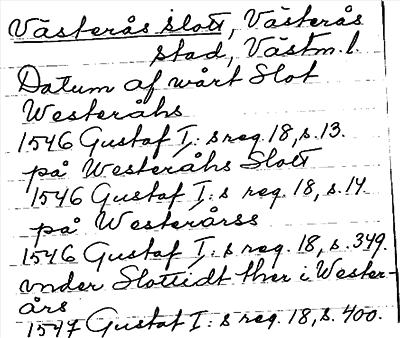 Västerås slott, Västerås
stad, Västm. l.
Datum af wårt Slot
Westeråhs
1546 Gustaf I:s reg. 18, s. 13.
på Westeråhs Slott
1546 Gustaf I:s reg. 18, s. 14.
på Westerårss
1546 Gustaf I:s reg. 18, s. 349.
vnder Slottidt ther i Wester-
års
1547 Gustaf I:s reg. 18, s. 400.